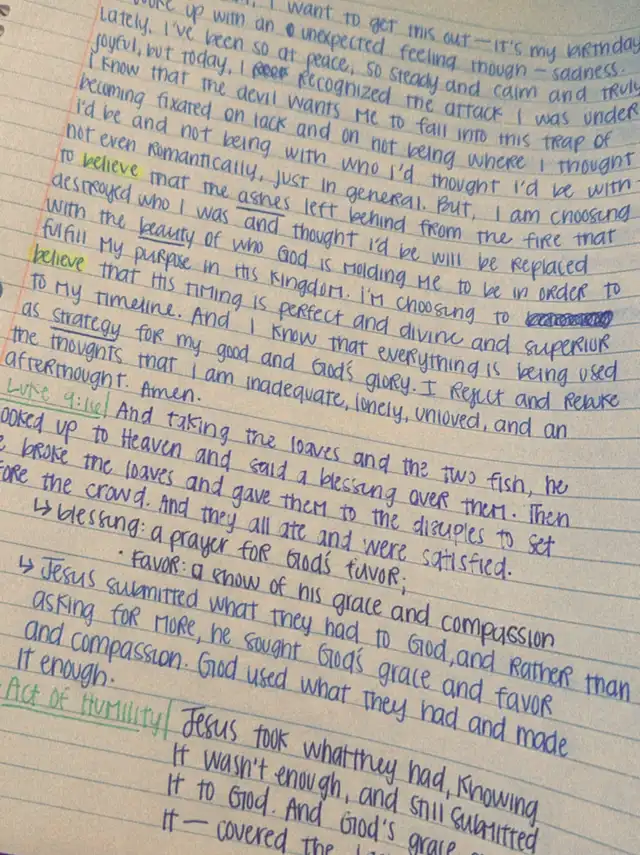 woke up with an unexpected feeling though — sadness. I want to get this out — it's my birthday
Lately, I've been so at peace, so steady and calm and truly
joyful, but today, I recognized the attack I was under
I know that the devil wants me to fall into this trap of
becoming fixated on lack and on not being where I thought
I'd be and not being with who I'd thought I'd be with
not even romantically, just in general. But, I am choosing
to believe that the ashes left behind from the fire that
destroyed who I was and thought I'd be will be replaced
with the beauty of who God is molding me to be in order to
fulfill my purpose in His Kingdom. I'm choosing to
believe that His timing is perfect and divine and superior
to my timeline. And I know that everything is being used
as strategy for my good and God's glory. I reject and rebuke
the thoughts that I am inadequate, lonely, unloved, and an
afterthought. Amen.
Luke 9:16 And taking the loaves and the two fish, he
looked up to Heaven and said a blessing over them. Then
broke the loaves and gave them to the disciples to set
fore the crowd. And they all ate and were satisfied.
↳ blessing: a prayer for God's favor;
· favor: a show of his grace and compassion
↳ Jesus submitted what they had to God, and rather than
asking for more, he sought God's grace and favor
and compassion. God used what they had and made
it enough.
Act of Humility Jesus took what they had, knowing
it wasn't enough, and still submitted
it to God. And God's grace
it — covered the